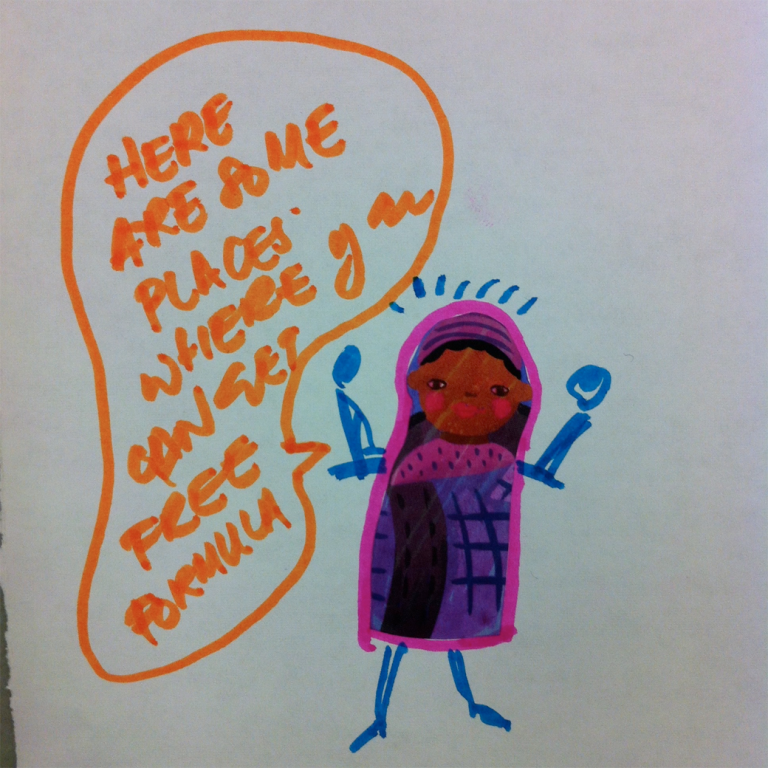 HERE
ARE SOME
PLACES
WHERE you
CAN GET
FREE
FORMULA